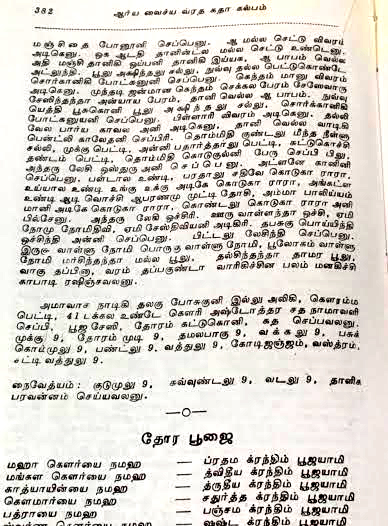 382 ஆர்ய வைச்ய வ்ரத கதா கல்பம்
மஞ்சிதை போனூனி செப்பெனு. ஆ மல்ல செட்டு விவரம்
அடிகெனு. ஒக ஆடதி தானின்டல மல்ல செட்டு உண்டெனு.
அதி மஞ்சி தானிகி ஒப்பனி தானிகி இய்யக, ஆ பாபம் வெல்ல
அட்லுந்தி. பூலு அக்ஷிந்தலு சல்லு, நுவ்வு தல்ல பெட்டுகொண்டே
சொர்காணிகி போட்கனுனு செப்பெனு. கெந்தம் மானு விவரம்
அடிகெனு. முந்தடி ஜன்மான கெந்தம் செக்கல பேரம் சேலேவாரு
சேஸிந்தந்தா அன்யாய பேரம், தானி வெல்ல ஆ பாபம். நுவ்வு
யெத்தி பூசுகொனி பூலு அக்ஷிந்தலு சல்லு, சொர்க்கானிகி
போட்கனுயனி செப்பெனு. பிள்ளாரி விவரம் அடிகெனு. தல்லி
வேல பார்ய காவல அனி அடிகெனு, தானி வெல்ல வாடிகி
பென்ட்லி காலேதனி செப்பிரி. தொம்மிதி குண்டலு மீந்த நீள்ளு
சல்லி, முக்கு பெட்டி, அன்னி பதார்த்தர்லு பெட்டி, கட்டுகொச்சி
தண்டம் பெட்டி, தொம்மிதி கொடுகுல்னி பேரு செப்பி பிலு
அந்தரு லேசி ஒஸ்துரு அனி செப்பெனு. அட்லனே கானினி
செப்பெனு. பள்டால உண்டா பரதாலு சதிவே கொடுகா ராரா,
உய்யால உண்டி உங்கு உக்கு அடிகே கொடுகா ராரா, அங்கட்ள
உண்டி ஆடி வொச்சி ஆபரணமு முட்டி தோசி, அம்மா பாலிய்யம்
மானி அடிகே கொடுகா ராரா, கொண்டலு கொடுகா ராரா அனி
பில்சேனு. அந்தரு லேகி ஒச்சிரி. ஊரு வாள்ளந்தா ஒச்சி, ஏமி
நோமு நோமிதிவி, ஏமி சேஸ்திவியனி அடிகிரி. தபசுகு பொய்யிந்தி
ஒச்சிந்தி அன்னி செப்பெனு. பிட்டலு லேசிந்தி செப்பெனு.
இருகு வாள்ளு நோமி பொருகு வாள்ளு நோமி, பூலோகம் வாள்ளு
நோமி மர்சிந்தந்தா மல்ல பூலு, தல்சிந்தந்தா தாமர பூலு,
வாகு தப்பினா, வரம் தப்பகுண்டா வாரிகிச்சின பலம் மனகிச்சி
காபாடி ரக்ஷிஞ்சவலனு.
அமாவாச நாடிகி தலகு போசுகுனி இல்லு அலிகி, கௌரம்ம
பெட்டி, 41 டக்கல உண்டே கௌரி அஷ்டோத்தர சத நாமாவளி
செப்பி, பூஜ சேஸி, தோரம் கட்டுகொனி, கத செப்பவலனு.
முக்கு 9, தோரம் முடி 9, தமலபாகு 9, வக்கலு 9, பசுக்
கொம்முலு 9, பண்ட்லு 9, வத்துலு 9, கோடிஜஞ்ஜம், வஸ்த்ரம்,
சட்டி வத்துலு 9.
நைவேத்யம்: குடுமுலு 9, சுவ்வுண்டலு 9, வடலு 9, தாளிக
பரவன்னம் செய்யவலனு.
—o—
தோர பூஜை
மஹா கௌர்யை நமஹ — ப்ரதம க்ரந்திம் பூஜயாமி
மங்கள கௌர்யை நமஹ — த்விதீய க்ரந்திம் பூஜயாமி
காத்யாயின்யை நமஹ — த்ருதீய க்ரந்திம் பூஜயாமி
கௌமார்யை நமஹ — சதுர்த்த க்ரந்திம் பூஜயாமி
பத்ராயை நமஹ — பஞ்சம க்ரந்திம் பூஜயாமி
நமஹ — ஷஷ்ட க்ரந்திம் பூஜயாமி